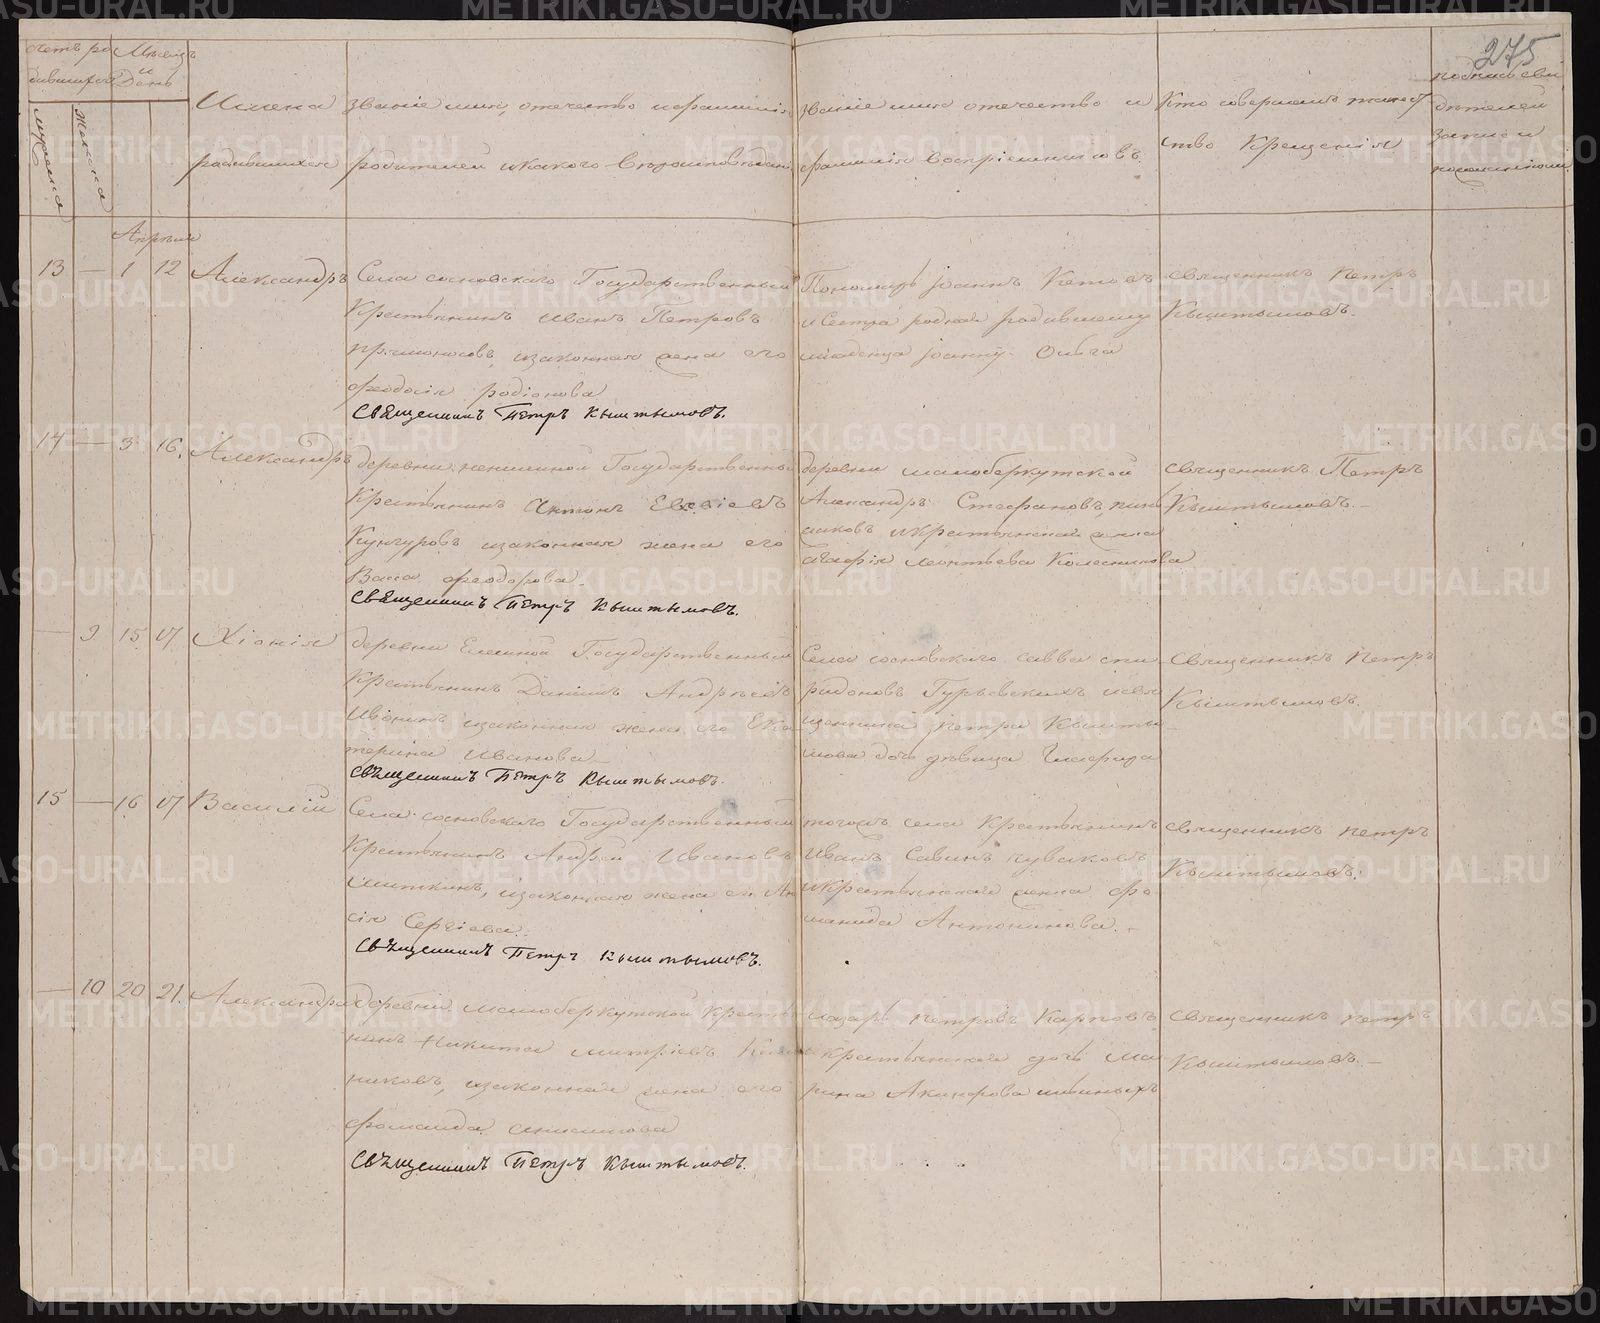 275
счетъ ро
Мѣсяцъ
и
дившихся
День
мужеска
женска
Имена
родившихся
званіе имя, отечество и фамилія
родителей и какого вѣроисповѣданія
званіе имя отечество и
фамилія воспріемниковъ.
Кто совершалъ таинст
ство Крещенія
подпись сви
дѣтелей
записи
Апрѣля
13 — 1 12 Александръ
Села сосновскаго Государственный
Крестьянинъ Иванъ Петровъ
изаконная жена его
феодосія родіонова
Священникъ Петръ Кыштымовъ.
Пономарь Іоаннъ
и Сестра родная родившему
младенца Іоанну Ольга
священникъ Петръ
Кыштымовъ.
14 — 3 16. Александръ
деревни Государственный
Крестьянинъ Антонъ Евсевіевъ
Кунгуровъ изаконная жена его
Васса феодорова.
Священникъ Петръ Кыштымовъ.
деревни малоберкутской
Александръ Стефановъ
икрестьянская жена
агафія леонтьева Колесникова
священникъ Петръ
Кыштымовъ.
— 9 15 17 Хіонія
деревни Елкиной Государственный
Крестьянинъ Даніилъ Андреевъ
изаконная жена его Ека
терина Иванова
Свѣщенникъ Петръ Кыштымовъ.
Села сосновскаго савва спи
ридоновъ Гурьевскихъ исвя
щенника петра Кышты
мова дочь дѣвица Глафира
Священникъ Петръ
Кыштымовъ.
15 — 16 17 Василій
Села сосновскаго Государственный
Крестьянинъ Андрей Ивановъ
изаконная жена его Ан
сія Сергіева.
Свѣщенникъ Петръ Кыштымовъ.
тогожъ села Крестьянинъ
Иванъ Савинъ чуваковъ
икрестьянская жена фо
маида Антонинова.
священникъ петръ
Кыштымовъ.
— 10 20 21. Александра
деревни малоберкутской Крестья
нинъ Никита митріевъ
никовъ, изаконная жена его
фомаида анисимова
Свѣщенникъ Петръ Кыштымовъ.
лазарь петровъ Карповъ
икрестьянская дочь ма
рина Акинфова
священникъ петръ
Кыштымовъ.